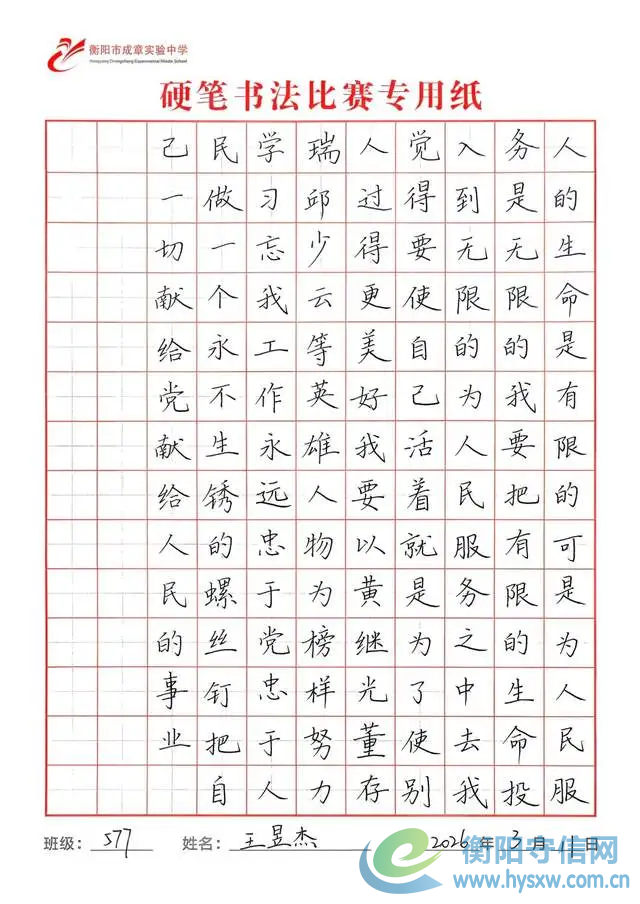 衡阳市成章实验中学
Hengyang Chengzhang Experimental Middle School
硬笔书法比赛专用纸
人的生命是有限的可是为人民服
务是无限的我要把有限的生命投
入到无限的为人民服务之中去我
觉得要使自己活着就是为了使别
人过得更美好我要以黄继光董存
瑞邱少云等英雄人物为榜样努力
学习忘我工作永远忠于党忠于人
民做一个永不生锈的螺丝钉把自
己一切献给党献给人民的事业
班级：577 姓名：王昱杰 2026年3月11日
衡阳守信网
www.hysxw.com.cn